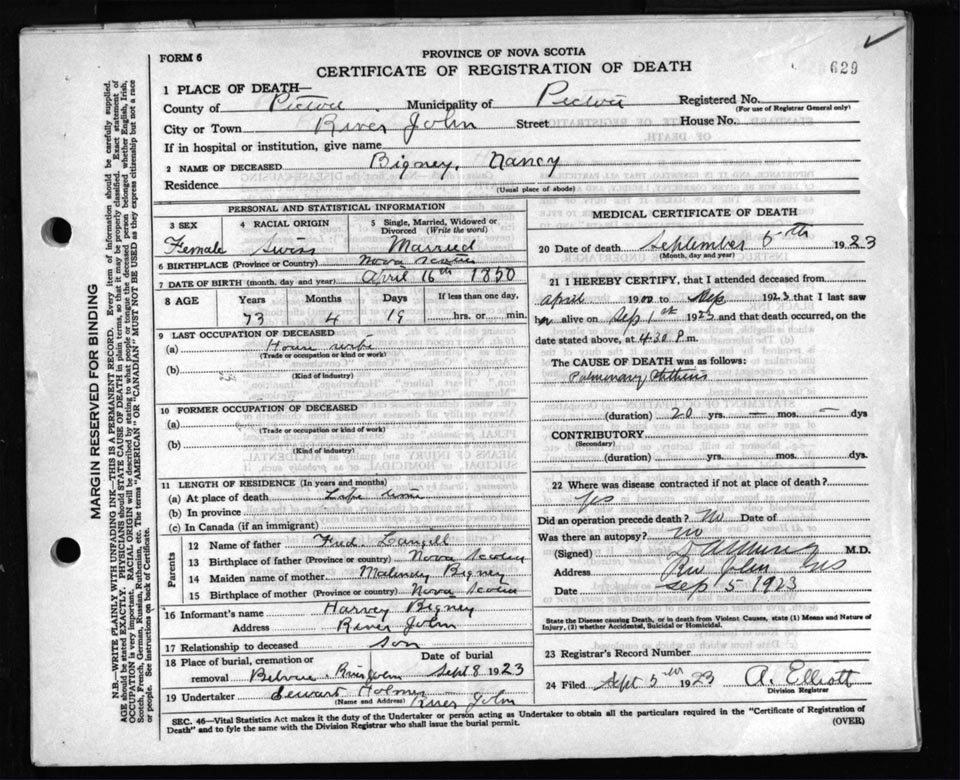 FORM 6
PROVINCE OF NOVA SCOTIA
CERTIFICATE OF REGISTRATION OF DEATH
629
1 PLACE OF DEATH—
County of Pictou Municipality of Pictou Registered No.
(For use of Registrar General only)
City or Town River John Street House No.
If in hospital or institution, give name
2 NAME OF DECEASED Bigney, Nancy
Residence
(Usual place of abode)
PERSONAL AND STATISTICAL INFORMATION
3 SEX 4 RACIAL ORIGIN 5 Single, Married, Widowed or Divorced (Write the word)
Female Swiss Married
6 BIRTHPLACE (Province or Country) Nova Scotia
7 DATE OF BIRTH (month, day and year) April 16th 1850
8 AGE Years Months Days If less than one day,
73 4 19 hrs. or min.
9 LAST OCCUPATION OF DECEASED
(a) House wife
(Trade or occupation or kind or work)
(b)
(Kind of industry)
10 FORMER OCCUPATION OF DECEASED
(a)
(Trade or occupation or kind of work)
(b)
(Kind of industry)
11 LENGTH OF RESIDENCE (In years and months)
(a) At place of death Life time
(b) In province
(c) In Canada (if an immigrant)
Parents
12 Name of father Fred. Langill
13 Birthplace of father (Province or country) Nova Scotia
14 Maiden name of mother Malinday Bigney
15 Birthplace of mother (Province or country) Nova Scotia
16 Informant's name Harvey Bigney
Address River John
17 Relationship to deceased Son
18 Place of burial, cremation or removal River John Date of burial Sept 8 1923
19 Undertaker Stewart Holmes River John
(Name and Address)
MEDICAL CERTIFICATE OF DEATH
20 Date of death September 5th 1923
(Month, day and year)
21 I HEREBY CERTIFY, that I attended deceased from
April 1900 to Sep 1923 that I last saw
her alive on Sep 1st 1923 and that death occurred, on the
date stated above, at 4:30 P.m.
The CAUSE OF DEATH was as follows:
Pulmonary
(duration) 20 yrs. — mos. — dys
CONTRIBUTORY
(Secondary)
(duration) yrs. mos. dys.
22 Where was disease contracted if not at place of death?
Yes
Did an operation precede death? No Date of
Was there an autopsy? no
(Signed) M.D.
Address River John NS
Date Sep 5 1923
State the Disease causing Death, or in death from Violent Causes, state (1) Means and Nature of Injury, (2) whether Accidental, Suicidal or Homicidal.
23 Registrar's Record Number
24 Filed Sept 5th 1923 A. Elliott
Division Registrar
SEC. 46—Vital Statistics Act makes it the duty of the Undertaker or person acting as Undertaker to obtain all the particulars required in the "Certificate of Registration of
Death" and to fyle the same with the Division Registrar who shall issue the burial permit.
(OVER)
MARGIN RESERVED FOR BINDING
N.B.—WRITE PLAINLY WITH UNFADING INK—THIS IS A PERMANENT RECORD. Every item of information should be carefully supplied.
AGE should be stated EXACTLY. PHYSICIANS should STATE CAUSE OF DEATH in plain terms, so that it may be properly classified. Exact statement of
OCCUPATION is very important. RACIAL ORIGIN will be described by stating to what people or tongue the deceased person belonged whether English, Irish,
Scotch, French, German, Russian, Ruthenian, etc. The terms "AMERICAN" or "CANADIAN" MUST NOT BE USED as they express citizenship but not a race
or people. See instructions on back of Certificate.